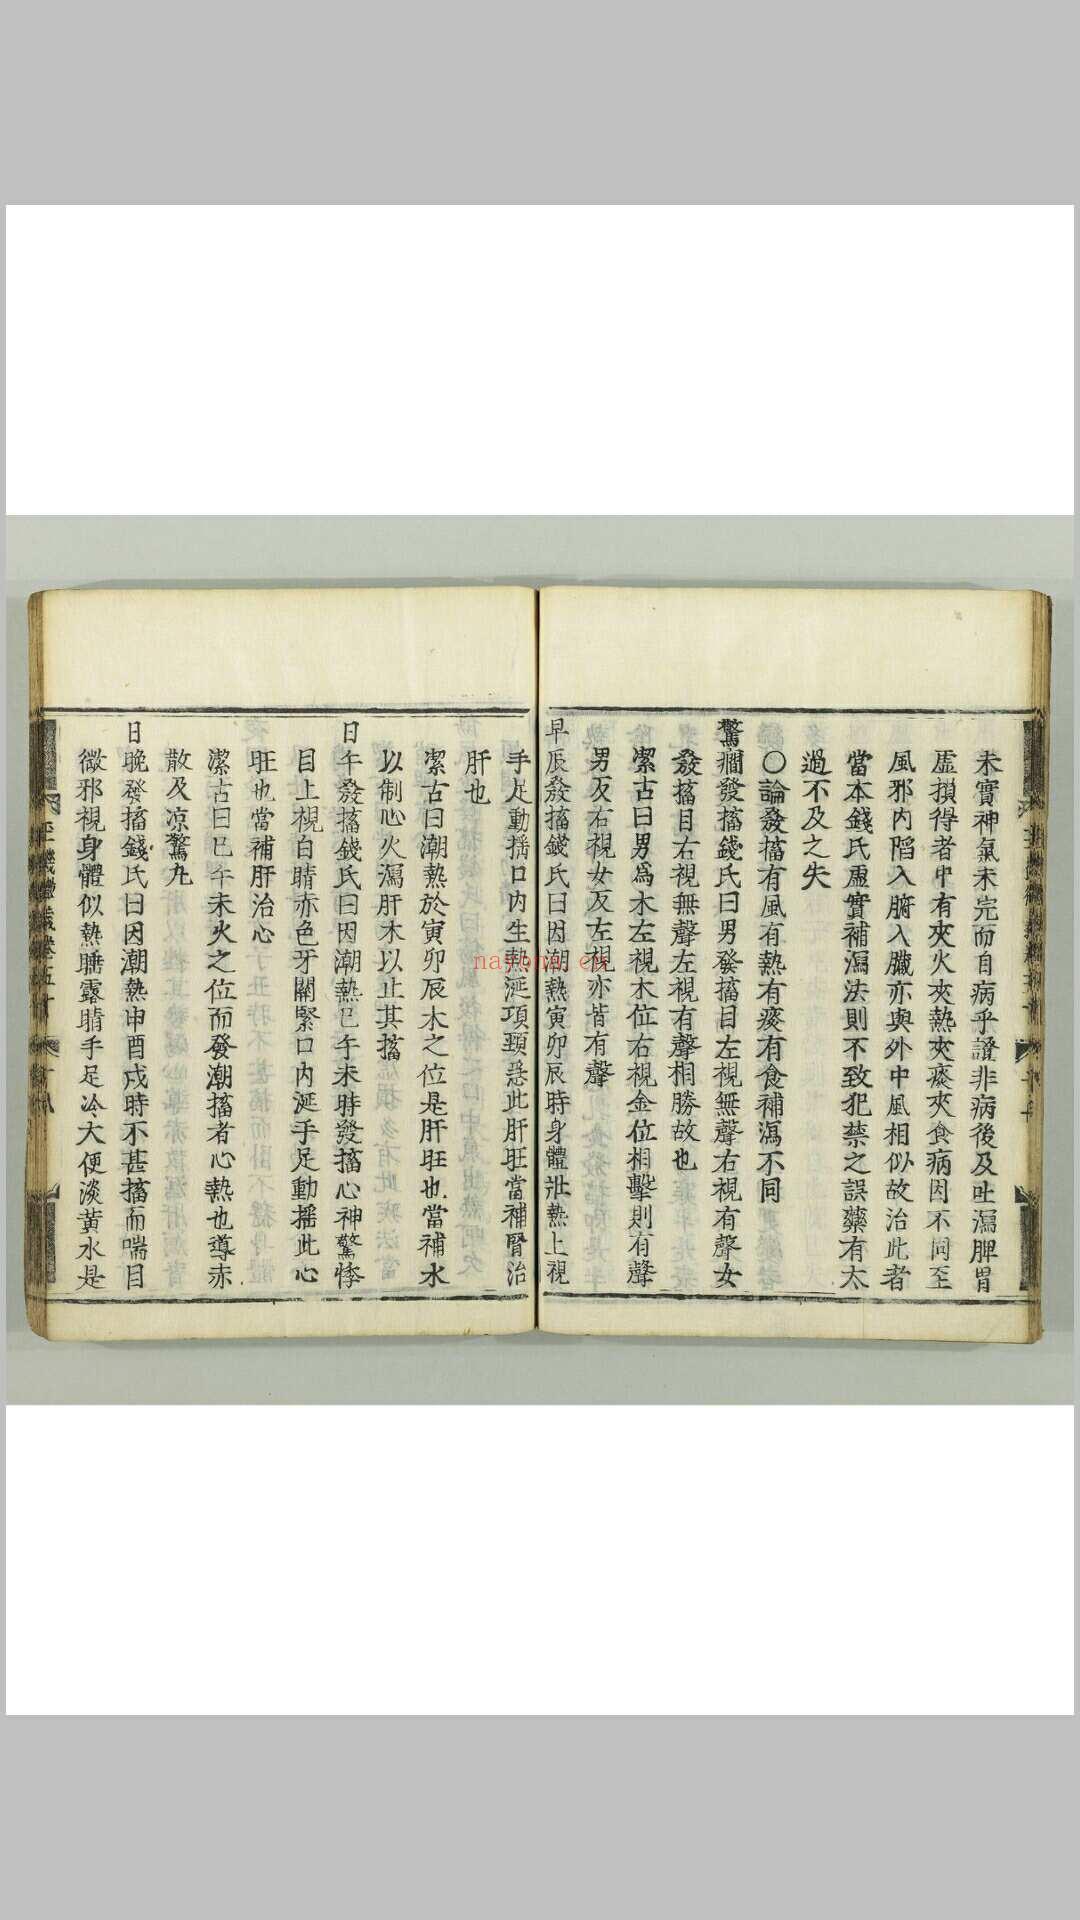 未實神氣未完而自病乎證非病後及吐瀉脾胃
虛損得者中有夾火夾熱夾痰夾食病因不同至
風邪内陷入腑入臟亦與外中風相似故治此者
當本錢氏虛實補瀉法則不致犯禁之誤藥有太
過不及之失
〇論發搐有風有熱有痰有食補瀉不同
驚癇發搐錢氏曰男發搐目左視無聲右視有聲女
發搐目右視無聲左視有聲相勝故也
潔古曰男爲木左視木位右視金位相擊則有聲
男反右視女反左視亦皆有聲
早辰發搐錢氏曰因潮熱寅卯辰時身體壯熱上視
手足動揺口内生熱涎項頸急此肝旺當補腎治
肝也
潔古曰潮熱於寅卯辰木之位是肝旺也當補水
以制心火瀉肝木以止其搐
日午發搐錢氏曰因潮熱巳午未時發搐心神驚悸
目上視白睛赤色牙關緊口内涎手足動揺此心
旺也當補肝治心
潔古曰巳午未火之位而發潮搐者心熱也導赤
散及凉驚丸
日晚發搐錢氏曰因潮熱申酉戌時不甚搐而喘目
微邪視身體似熱睡露睛手足冷大便淡黄水是
玉機微義卷五十
nayona.cn